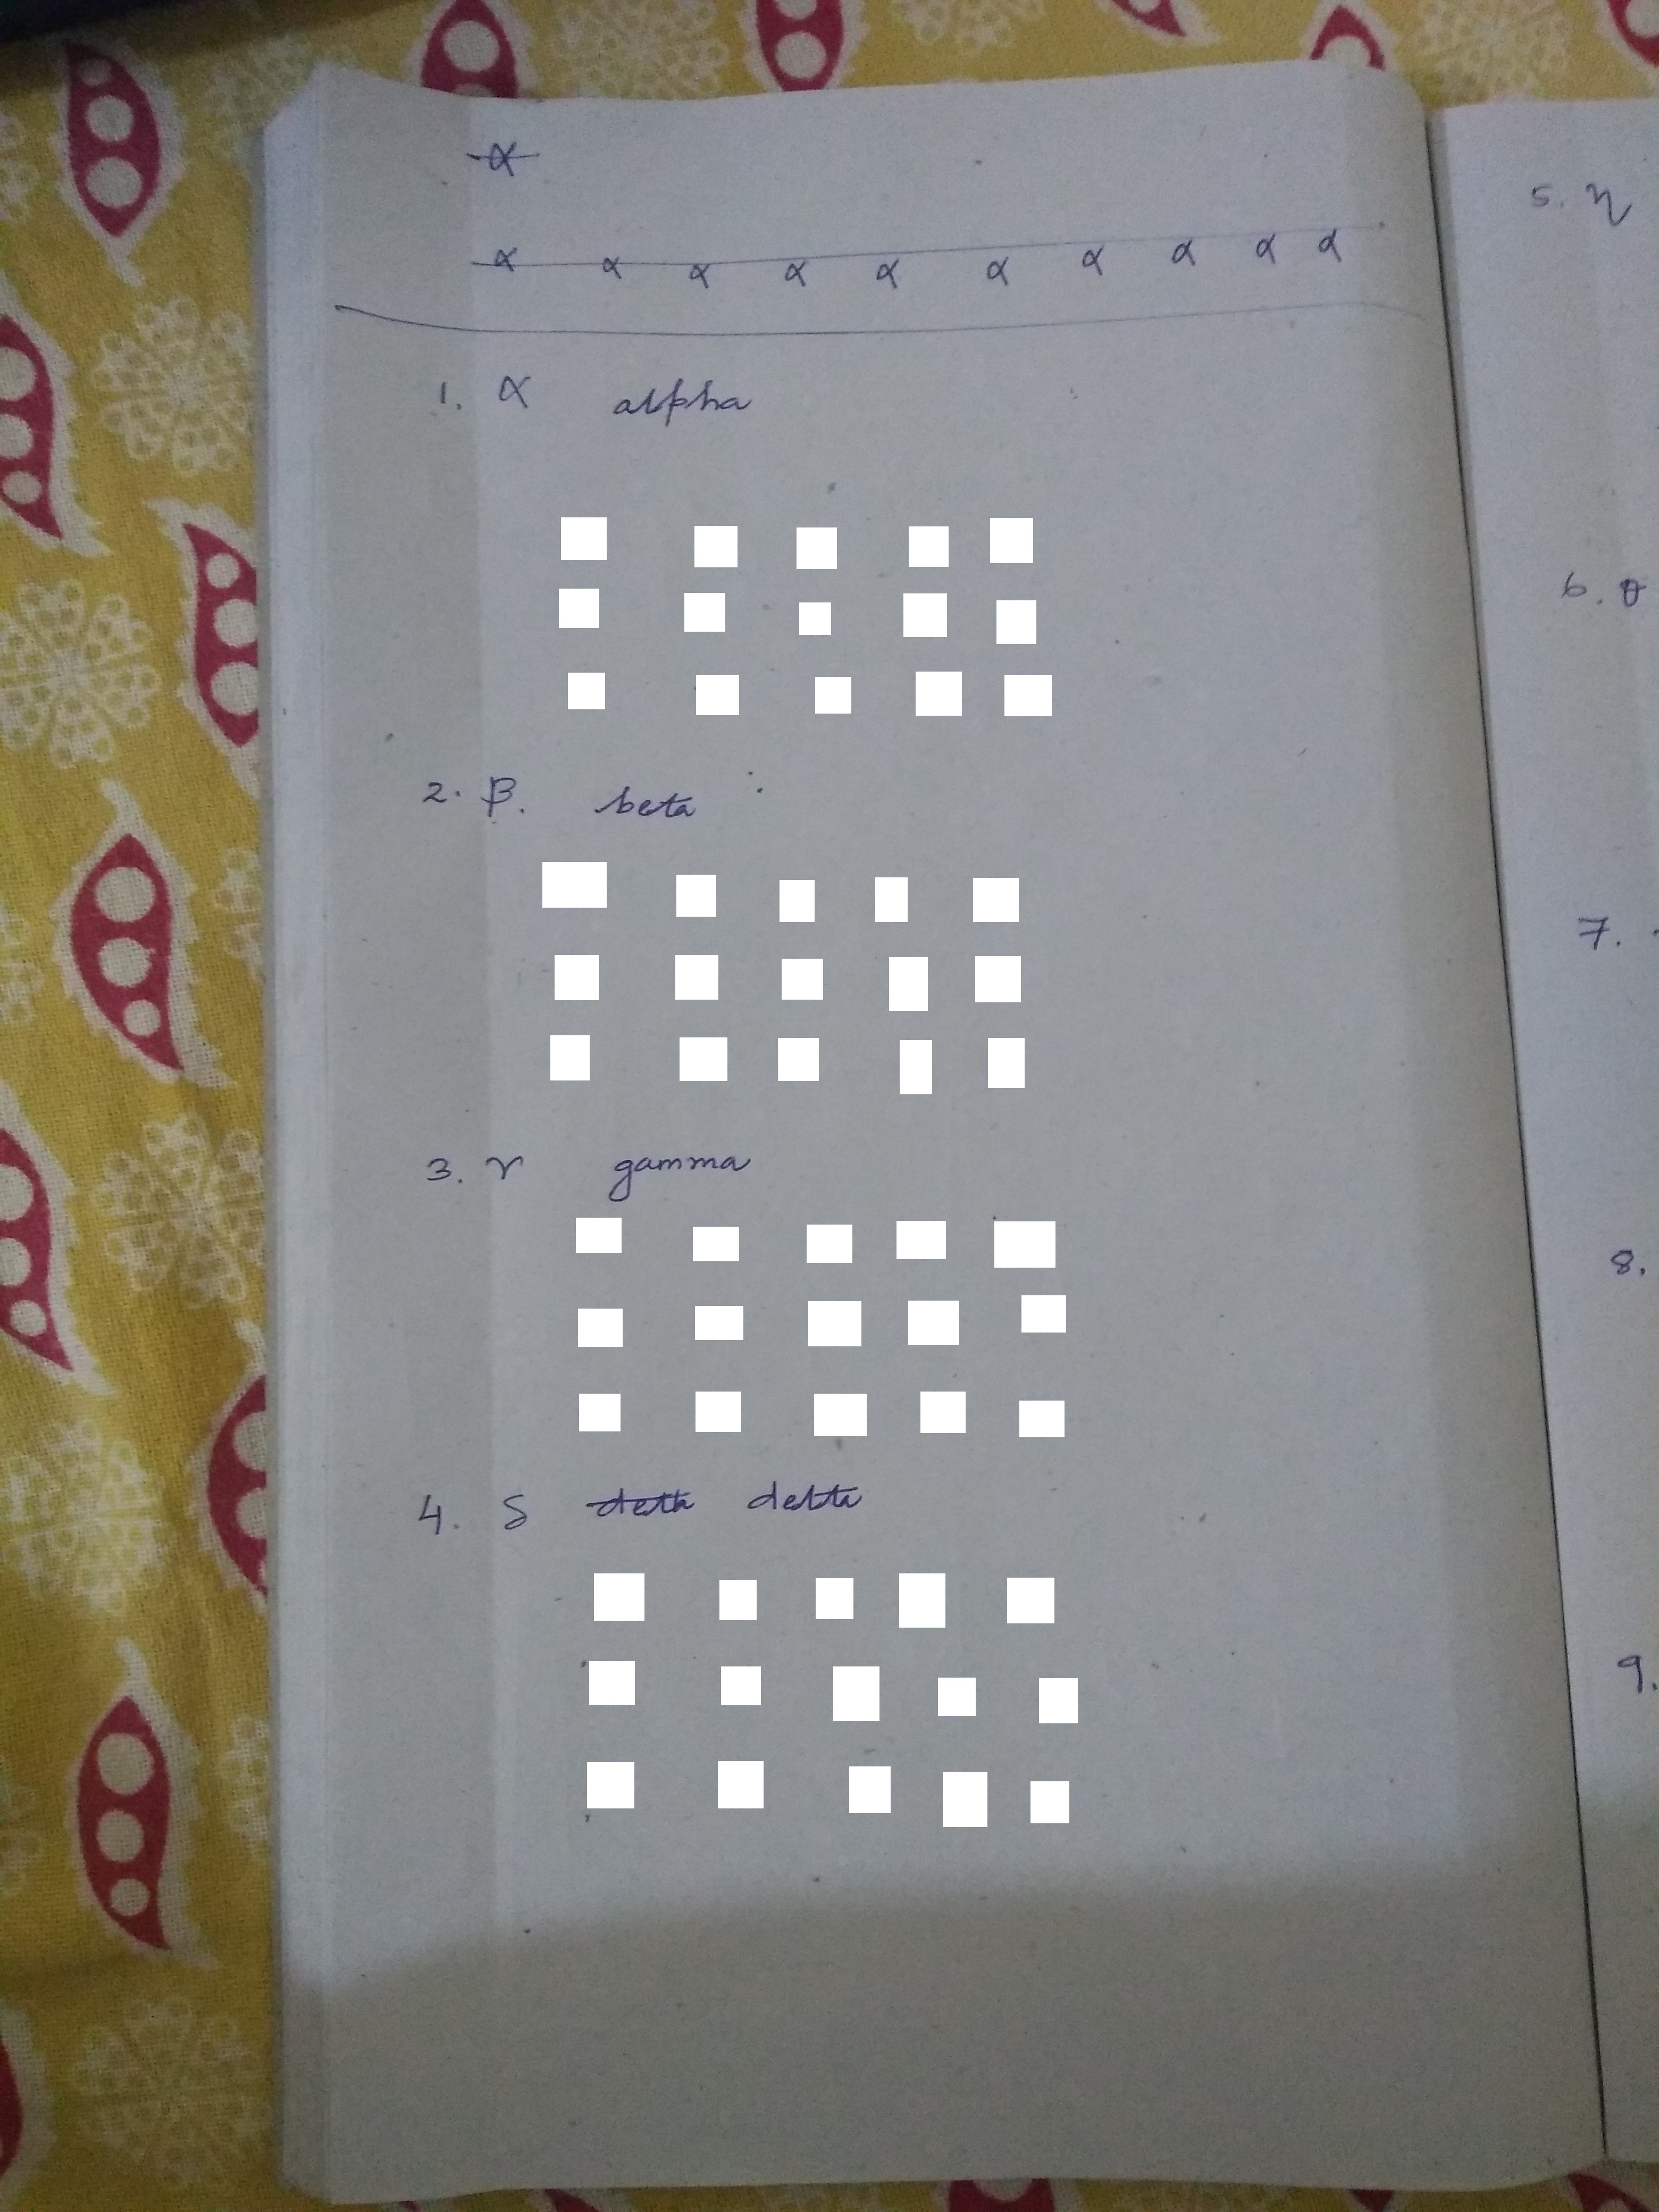 α
α α α α α α α α α α
1. α alpha
2. β. beta
3. γ gamma
4. δ delta
5. η
6. θ
7.
8.
9.